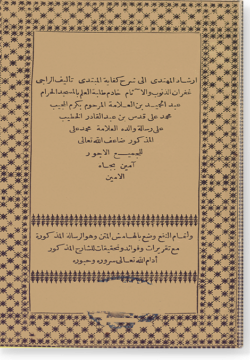 ارشاد المهتدى الى شرح كفاية المبتدى تأليف الراجى
غفران الذنوب والآثام خادم طلبة العلم بالمسجد الحرام
عبد الحميد بن العلامة المرحوم بكرم المجيب
محمد على قدس بن عبد القادر الخطيب
على رسالة والده العلامة محمد على
المذكور ضاعف الله تعالى
للجميع الأجور
آمين بجاه
الامين
ولتمام النفع وضع بالهامش المتن وهو الرسالة المذكورة
مع تقريرات وفوائد وتحقيقات للشارح المذكور
أدام الله تعالى سروره وحبوره